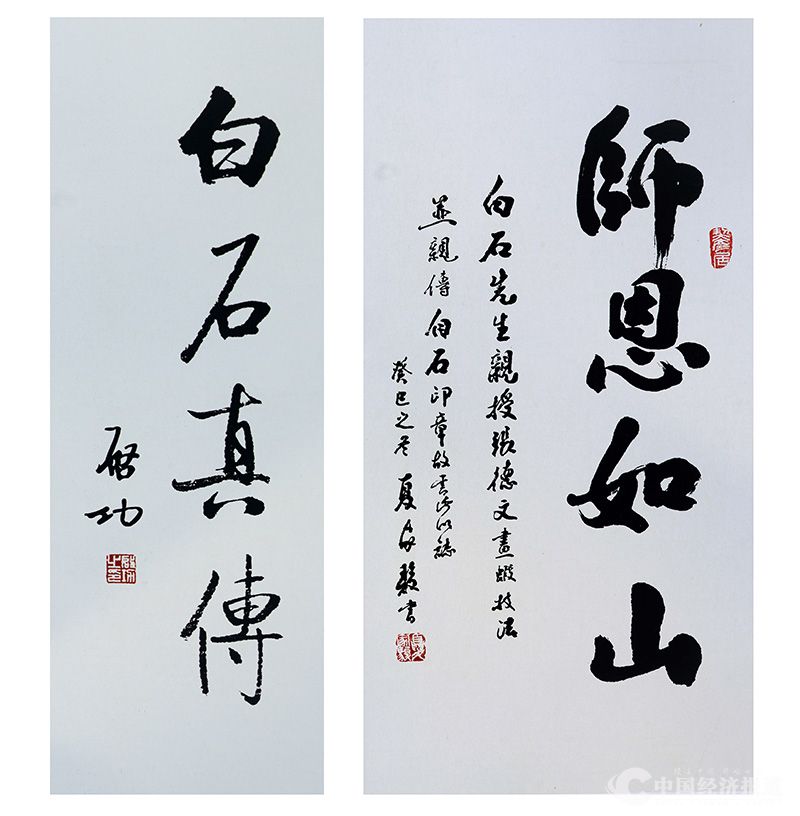 白石真傳
啓功
師恩如山
白石先生親授張德文畫蝦技法
並親傳白石印章故書此以誌
癸巳之冬夏家駿書
中国经济报道